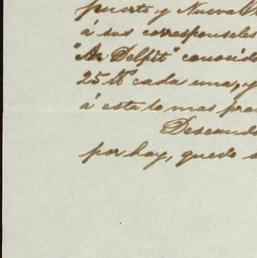 puerto y Nueva
á sus corresponsales
"A. Delfit" conocid
25 lbs cada una, y
á esta lo mas pro
Deseando
por hoy, quedo s